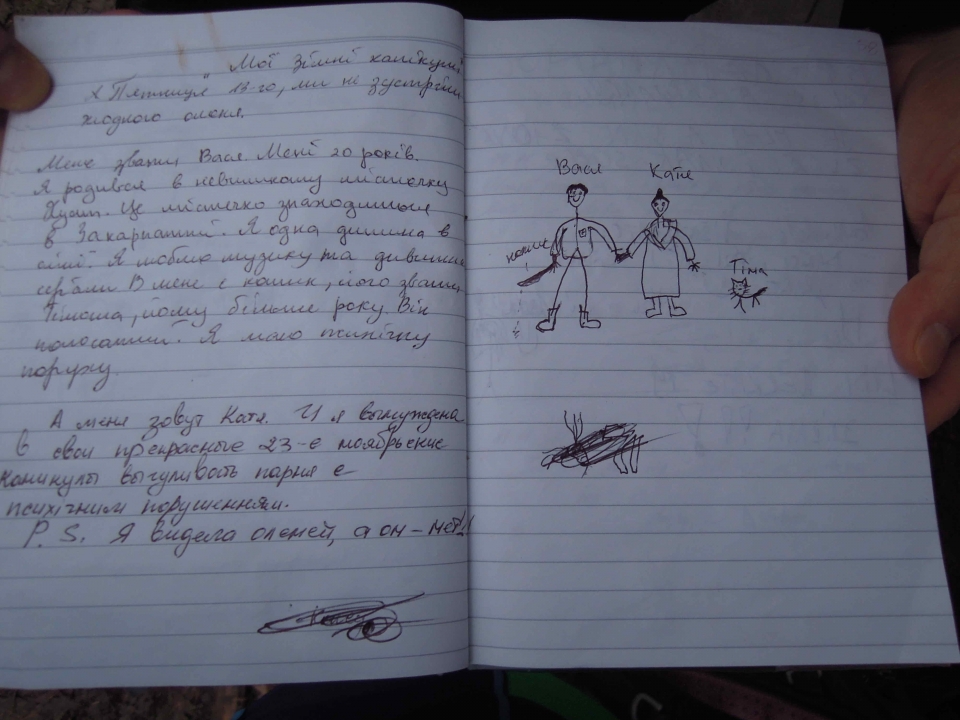 „Мої Зімні канікули"
х "Пятниця 13-го, ми не зустріли
жодного оленя.
Мене звати Вася. Мені 20 років.
Я родився в невеликому містечку
Хуст. Це містечко знаходиться
в Закарпатті. Я одна дитина в
сімї. Я люблю музику та дивитись
серіали В мене є котик, його звати
Тімоша, йому більше року. Він
полосатий. Я маю психічну
поруху.
А меня зовут Катя. И я вынуждена
в свои прекрасные 23-е ноябрьские
каникулы выгуливать парня с
психічним порушенням.
P. S. Я видела оленей, а он – нет!!
Вася
Катя
Тіма